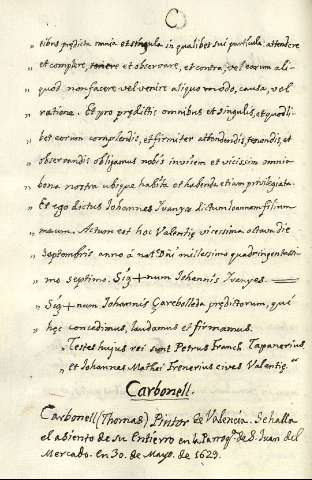 C
„ tibus prędicta omnia et singula in qualibet sui particula: attendere
„ et complere, tenere et observare, et contra, vel eorum ali-
„ quod non facere vel venire aliquo modo, causa, vel
„ ratione. Et pro prędictis omnibus et singulis, et quodli-
„ bet eorum complendis, et firmiter attendendis, tenendis, et
„ observandis obliganus nobis invicem et vicissim omnia
„ bona nostra ubique habita et habenda etiam privilegiata.
„ Et ego dictus Iohannes Ivanyes dictum Ioannem filium
„ meum. Actum est hoc Valentię vicessima octava die
„ Septembris anno á nat. Dñi millessimo quadringentessi-
„ mo septimo. Sig+num Iohannis Ivanyes.
„ Sig+num Iohannis Çarebolleda prędictorum, qui
„ hęc concedimus, laudamus et firmamus.
„ Testes hujus rei sunt Petrus Franch Tapinerius
„ et Iohannes Mathei Frenerius cives Valentię."
Carbonell.
Carbonell (Thomas) Pintor de Valencia. Se halla
el asiento de su Entierro en la Parroq.ª de S. Juan del
Mercado. en 30. de Mayo. de 1629.